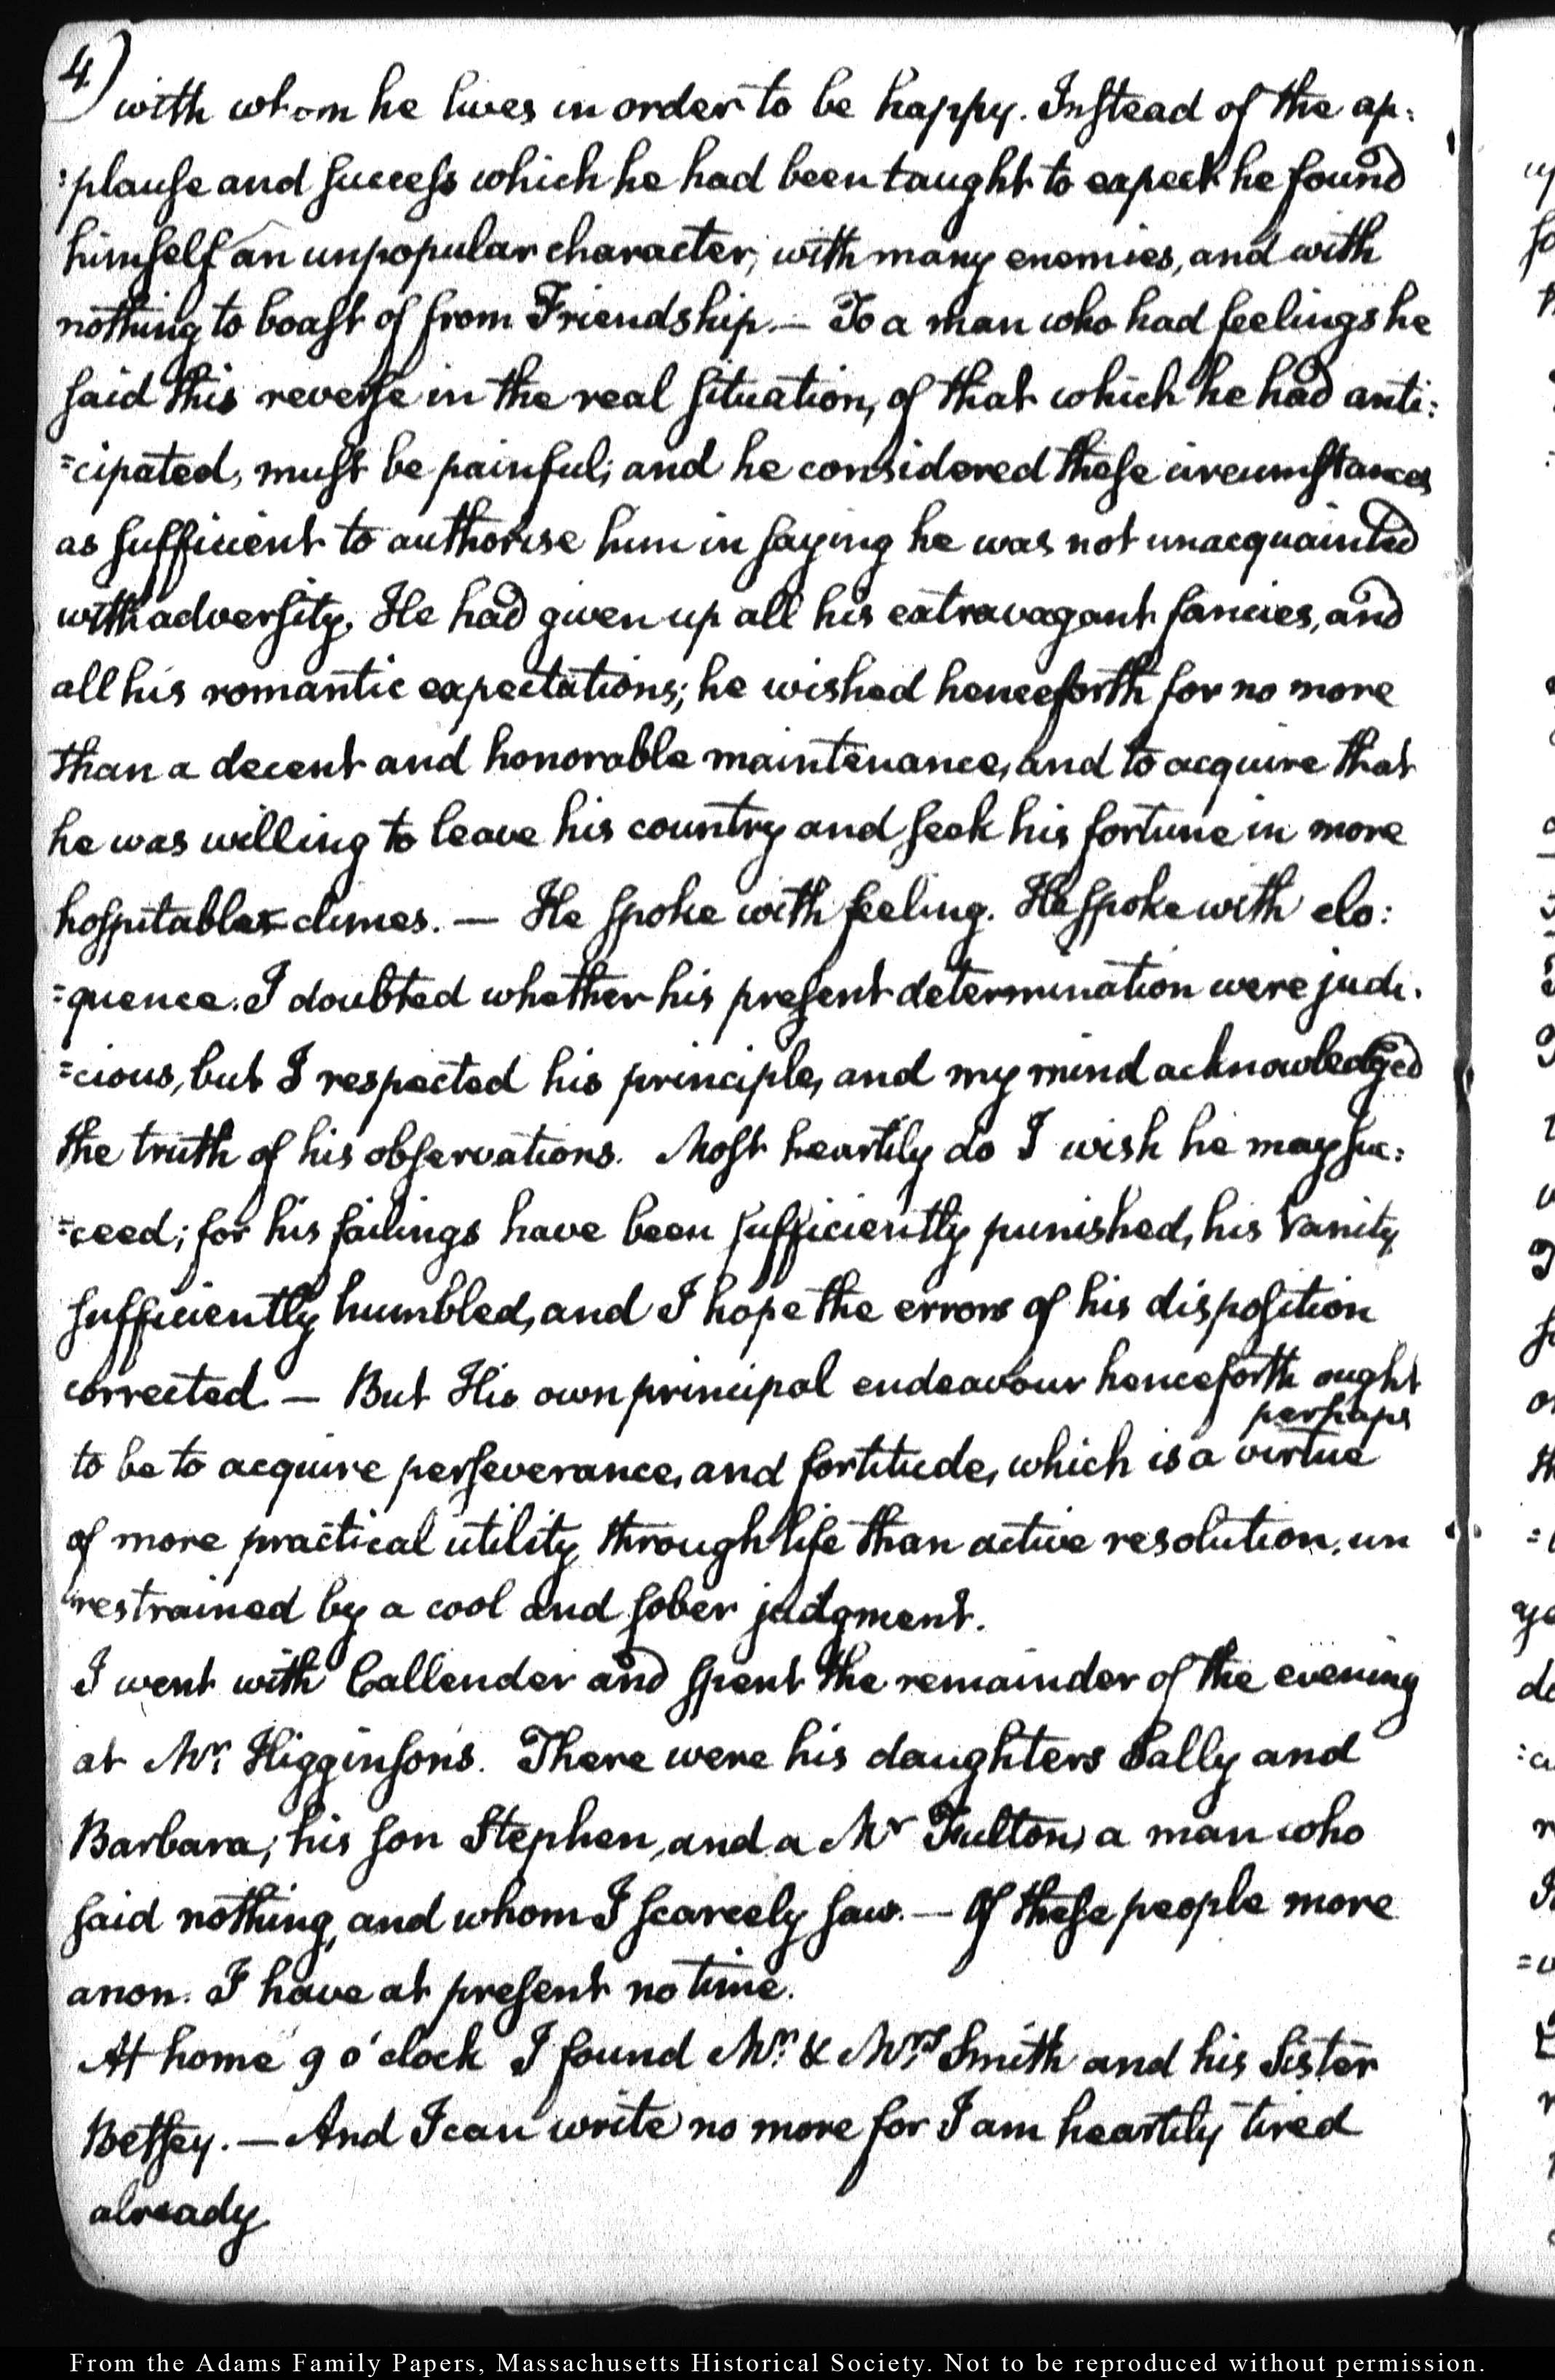 4)
with whom he lives in order to be happy. Instead of the ap:
:plause and success which he had been taught to expect he found
himself an unpopular character, with many enemies, and with
nothing to boast of from Friendship. — To a man who had feelings he
said this reverse in the real situation, of that which he had anti:
=cipated, must be painful; and he considered these circumstances
as sufficient to authorise him in saying he was not unacquainted
with adversity. He had given up all his extravagant fancies, and
all his romantic expectations; he wished henceforth for no more
than a decent and honorable maintenance, and to acquire that
he was willing to leave his country and seek his fortune in more
hospitable climes. — He spoke with feeling. He spoke with elo:
=quence. I doubted whether his present determination were judi.
=cious, but I respected his principle, and my mind acknowledged
the truth of his observations. Most heartily do I wish he may suc:
=ceed; for his failings have been sufficiently punished, his Vanity
sufficiently humbled, and I hope the errors of his disposition
corrected — But His own principal endeavour henceforth ought
perhaps
to be to acquire perseverance, and fortitude, which is a virtue
of more practical utility through life than active resolution, un
restrained by a cool and sober judgment.
I went with Callender and spent the remainder of the evening
at Mr. Higginson's. There were his daughters Sally and
Barbara; his son Stephen, and a Mr Fulton, a man who
said nothing, and whom I scarcely saw. — Of these people more
anon. I have at present no time.
At home 9 o'clock I found Mr. & Mrs. Smith and his Sister
Betsey. — And I can write no more for I am heartily tired
already
From the Adams Family Papers, Massachusetts Historical Society. Not to be reproduced without permission.